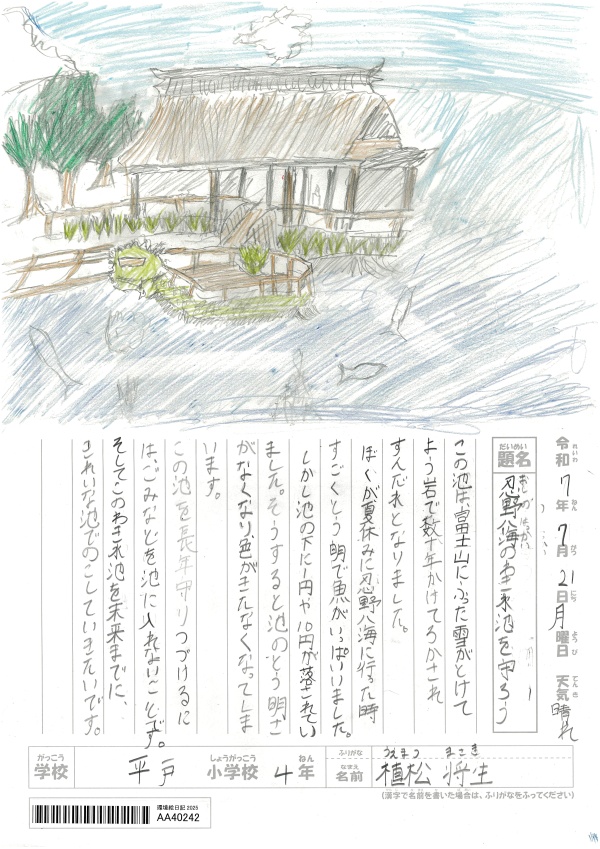 令和7年7月21日月曜日 天気 晴れ
れいわ ねん がつ にち ようび てんき
題名 忍野八海のわき水池を守ろう
だいめい おしの はっかい
この池は富士山にふった雪がとけて
よう岩で数十年かけてろかされ
すんだ水となりました。
ぼくが夏休みに忍野八海に行った時
すごくとう明で魚がいっぱいいました。
しかし池の下に1円や10円が落されてい
ました。そうすると池のとう明さ
がなくなり、色がきたなくなってしま
います。
この池を長年守りつづけるに
は、ごみなどを池に入れないことです。
そしてこのわき水池を未来までに、
きれいな池でのこしていきたいです。
がっこう しょうがっこう ねん ふりがな うえまつ まさき
学校 平戸 小学校 4年 なまえ 名前 植松 将生
(漢字で名前を書いた場合は、ふりがなをふってください)
環境絵日記 2025
AA40242